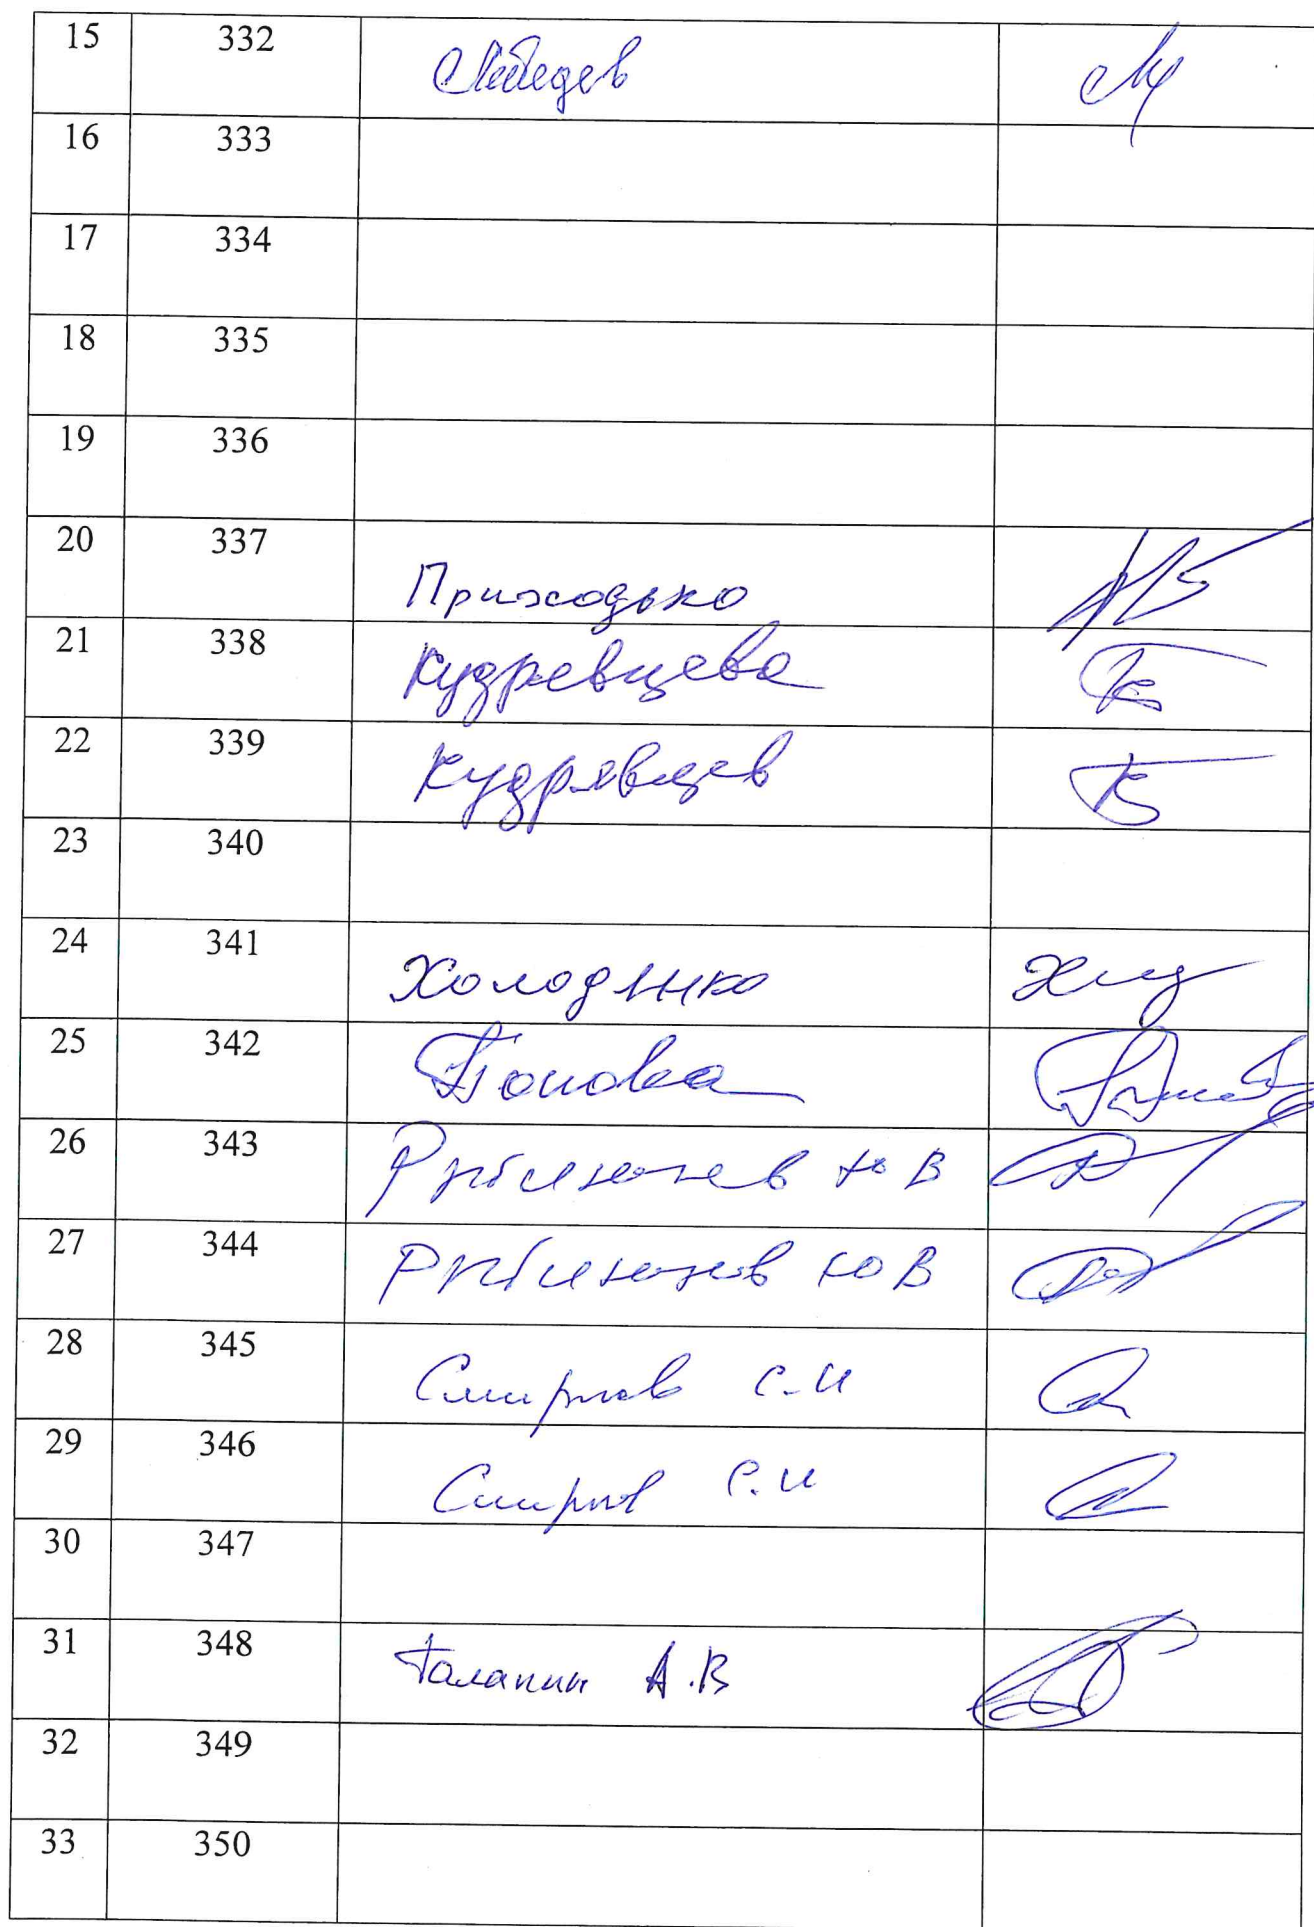 15 332 Лебедев
16 333
17 334
18 335
19 336
20 337 Приходько
21 338 Кудревцева
22 339 Кудрявцев
23 340
24 341 Холодинко
25 342 Попова
26 343 Ю В
27 344 Ю В
28 345 Смирнов С.И
29 346 Смирнов С.И
30 347
31 348 Таланин А.В
32 349
33 350